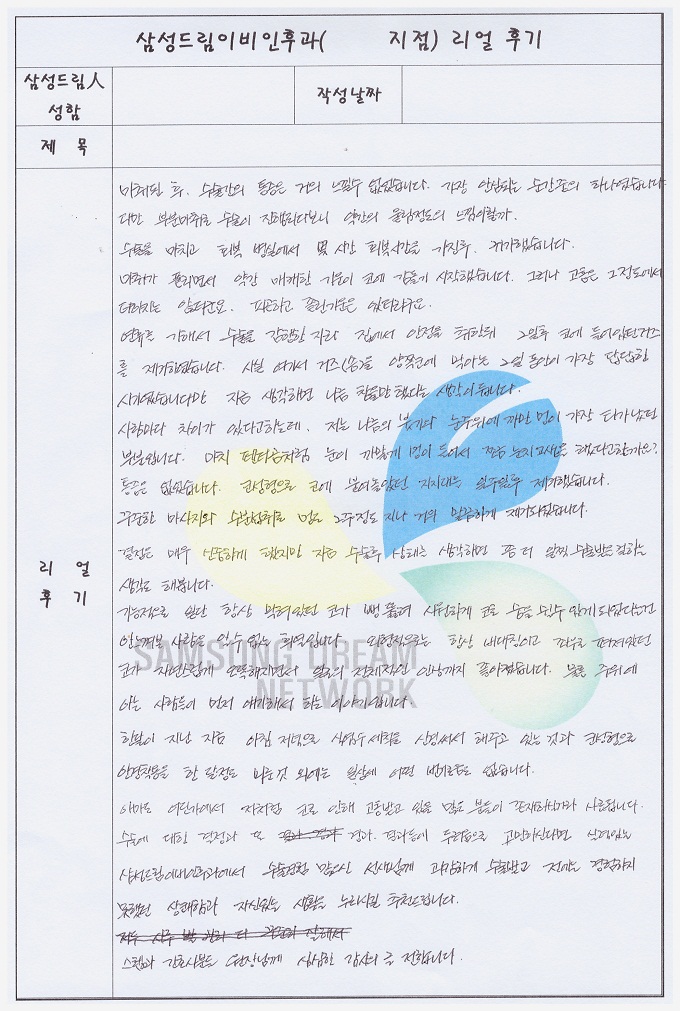 삼성드림이비인후과( 지점) 리얼 후기
삼성드림人
성함
작성날짜
제 목
리 얼
후 기
마취된 후, 수술간의 통증은 거의 느낄수 없었습니다. 가장 안심되는 순간중의 하나였습니다
다만 부분마취로 수술이 진행되다보니 약간의 울림정도의 느낌이랄까.
수술을 마치고 회복 병실에서 몇 시간 회복시간을 가진후, 귀가했습니다.
마취가 풀리면서 약간 매캐한 기운이 코에 감돌기 시작했습니다. 그러나 고통은 그정도에서
더해지는 않더군요. 피곤하고 졸린기운은 있더라구요.
연휴를 기해서 수술을 감행한지라 집에서 안정을 취한뒤 2일후 코에 들어있던 거즈
를 제거하였습니다. 사실 여기서 거즈(솜)을 양쪽코에 막아논 2일 동안이 가장 답답한
시기였습니다만 지금 생각하면 나름 참을만 했다는 생각이 듭니다.
사람마다 차이가 있다고하는데, 저는 나름의 붓기나 눈주위에 까만 멍이 가장 티가 났던
부분입니다. 마치 팬더곰처럼 눈이 까맣게 멍이 들어서
통증은 없었습니다. 코성형으로 코에 붙여놓았던 지지대는 일주일후 제거했습니다.
꾸준한 마사지와 수분섭취로 멍도 2주정도 지나 거의 말끔하게 제거되었습니다.
결정은 매우 신중하게 했지만 지금 수술후 상태를 생각하면 좀 더 일찍 수술받을걸하는
생각도 해봅니다.
기능적으로 일단 항상 막혀있던 코가 뻥 뚫려 시원하게 코로 숨을 쉴수 있게 되었다는건
안느껴본 사람은 알수 없는 희열입니다. 외관적으로는 항상
코가 자연스럽게 오똑해지면서 얼굴의 전체적인 인상까지 좋아졌습니다. 물론 주위에
아는 사람들이 먼저 얘기해서 하는 이야기입니다
한달이 지난 지금 아침 저녁으로 식염수세척을 신경써서 해주고 있는 것과 코성형으로
안경착용을 한 달정도 미룬것 외에는 일상에 어떤 번거로움도 없습니다.
아마도 어딘가에서 저처럼 코로 인해 고통받고 있을 많은 분들이 존재하시리라 사료됩니다.
수술에 대한 걱정과 또 경과, 결과등이 두려움으로 고민하신다면
삼성드림이비인후과에서 수술경험 많으신 선생님께 과감하게 수술받고 전에는 경험하지
못했던 상쾌함과 자신있는 생활을 누리시길 추천드립니다.
스탭과 간호사분들 원장님께 심심한 감사의 글 전합니다.
SAMSUNG DREAM
NETWORK